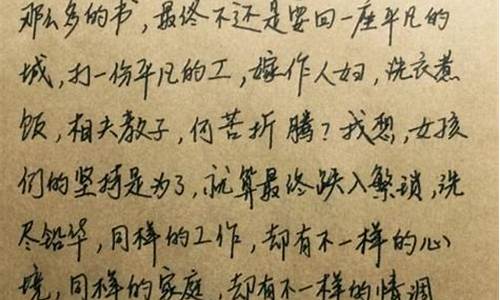 那么多的书，最终不还是要回一座平凡的
城，打一份平凡的工，嫁作人妇，洗衣煮
饭，相夫教子，何苦折腾？我想，女孩
们的坚持是为了，就算最终跌入繁琐，洗
尽铅华，同样的工作，却有不一样的心
境，同样的家庭，却有不一样的情调